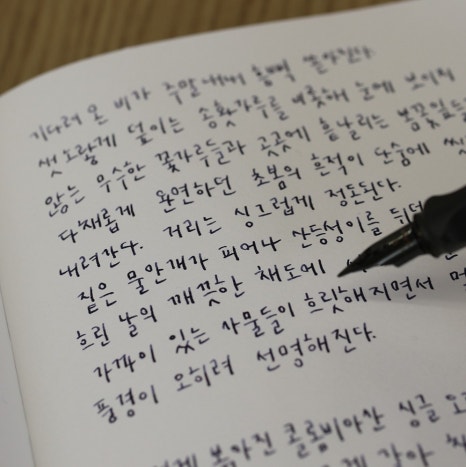 기다려 온 비가 주말 내내 흠뻑 쏟아진다.
싯노랗게 덮이는 송홧가루를 비롯해 눈에 보이지
않는 무수한 꽃가루들과 곳곳에 흩날리는 봄꽃잎들
다채롭게 완연하던 초봄의 흔적이 단숨에 씻
내려간다. 거리는 싱그럽게 정돈된다.
짙은 물안개가 피어나 산등성이를 뒤덮
흐린 날의 깨끗한 채도에
가까이 있는 사물들이 흐릿해지면서
풍경이 오히려 선명해진다.
볶아진 콜롬비아산 싱글
갈아